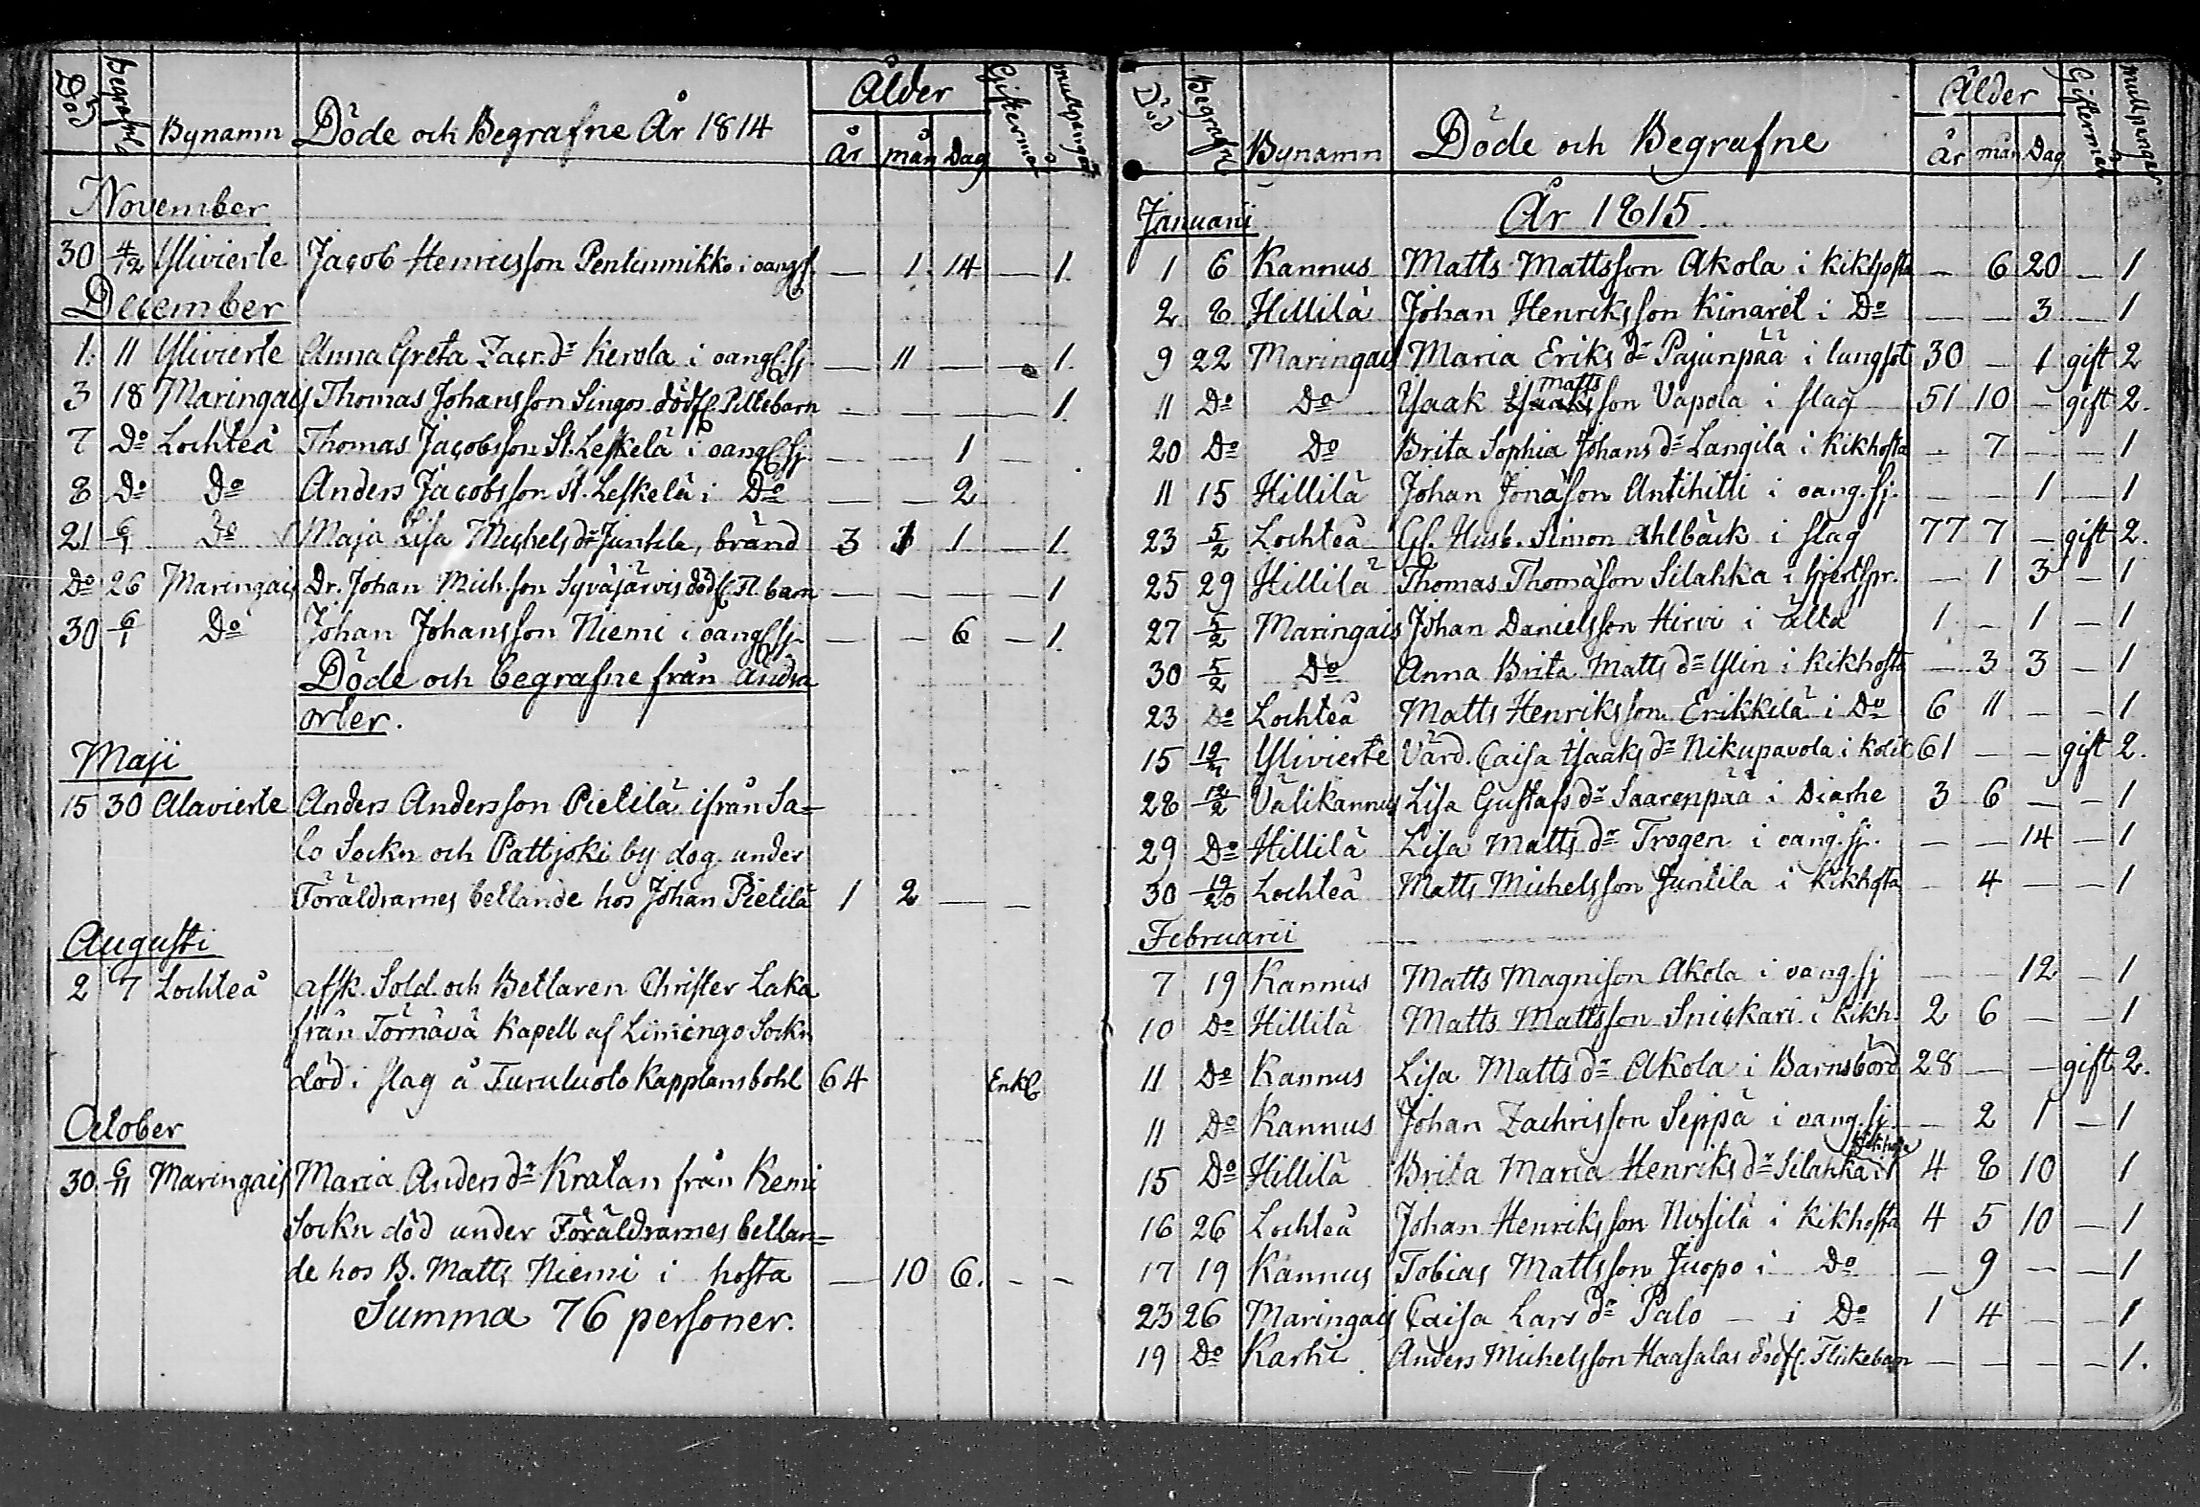 Död Begrafne Bynamn Döde och Begrafne År 1814 Ålder År mån Dag Giftermål mullpengar
November
30 4/12 Ylivierle Jacob Henricsson Pentinmikko i oang sj. — 1. 14 — 1.
December
1. 11 Ylivierle Anna Greta Zacr. dr Kerola i oang. sj. — 11 — — 1.
3 18 Maringais Thomas Johansson Singos dödf. Piltebarn — — — — 1.
7 Do Lochteå Thomas Jacobsson St. Leskelä i oang. sj. — — 1
8 Do Do Anders Jacobsson St. Leskelä i Do — — 2
21 6/1 Do Maja Lisa Michels dr Juntila, bränd 3 1 1 — 1.
Do 26 Maringais Dr. Johan Mich.son Syväjärvis dödf. Fl. barn — — — — 1
30 6/1 Do Johan Johansson Niemi i oang sj. — — 6 — 1.
Döde och begrafne från andra
orter.
Maji
15 30 Alavierle Anders Andersson Pietilä ifrån Sa=
lo Sockn och Pattjoki by dog under
Föräldrarnes bettlande hos Johan Pietilä 1 2 — —
Augusti
2 7 Lochteå afsk. Sold. och Bettlaren Christer Laka
från Törnävä Kapell af Limingo Sockn
död i slag å Turuluoto Kapplansbohl 64 Enkl.
October
30 6/11 Maringais Maria Anders dr Kratan från Kemi
Sockn död under Föräldrarnes bettlan=
de hos B. Matts Niemi i hosta — 10 6. — —
Summa 76 personer.
Död Begrafne Bynamn Döde och Begrafne Ålder År mån Dag Giftermål mullpengar
Januarii År 1815
1 6 Kannus Matts Mattsson Akola i kikhosta — 6 20 — 1
2 8 Hillilä Johan Henriksson Kinaret i Do — — 3 — 1
9 22 Maringais Maria Eriks dr Pajunpää i lungsot 30 — 1 gift 2
11 Do Do Isaak Matts son Vapola i slag 51 10 — gift 2.
20 Do Do Brita Sophia Johans dr Langila i Kikhosta — 7 — — 1
11 15 Hillilä Johan Jonasson Antihitti i oang. sj. — — 1 — 1
23 5/2 Lochteå Gl. Husb. Simon Ahlbäck i slag 77 7 — gift 2.
25 29 Hillilä Thomas Thomasson Silahka i hjertspr. — 1 3 — 1
27 5/2 Maringais Johan Danielsson Hirvi i älta 1 — 1 — 1
30 5/2 Do Anna Brita Matts dr Ylin i Kikhosta — 3 3 — 1
23 Do Lochteå Matts Henriksson Erikkilä i Do 6 11 — — 1
15 Ylivierte Värd. Caisa Isaaks dr Nikupavola i kolik 61 — — gift 2.
28 12/2 Välikannus Lisa Gustafs dr Saarenpää i Diarhe 3 6 — — 1
29 Do Hillilä Lisa Matts dr Trogen i oang. sj. — — 14 — 1
30 Lochteå Matts Michelsson Juntila i Kikhosta — 4 — — 1
Februarii
7 19 Kannus Matts Magnison Akola i oang. sj — — 12 — 1
10 Do Hillilä Matts Mattsson Snickari i Kikh. 2 6 — — 1
11 Do Kannus Lisa Matts dr Akola i Barnsbörd 28 — — gift 2.
11 Do Kannus Johan Zachrisson Seppä i oang. sj. — 2 1 — 1
15 Do Hillilä Brita Maria Henriks dr Silahka i 4 8 10 1
16 26 Lochteå Johan Henriksson Nissilä i Kikhosta 4 5 10 — 1
17 19 Kannus Tobias Mattsson Juopo i Do — 9 — — 1
23 26 Maringais Caisa Lars dr Palo — i Do 1 4 — — 1
19 Do Karhi Anders Michelsson Haasalas dödf. Flickebarn — — — — 1.